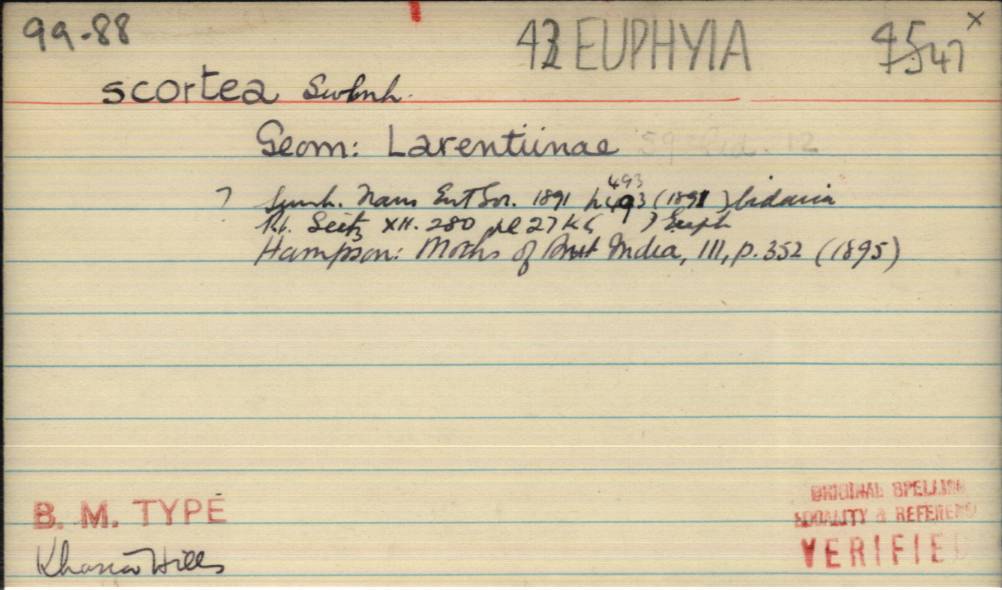 99.88 43 EUPHYIA 4547 x
scortea Swinh.
Geom: Larentiinae
493
? Swinh. Trans Ent Soc. 1891 p 493 (1891) Cidaria
Pt. Seitz XII. 280 pl 27 k6 ) Euph
Hampson: Moths of Brit India, III, p. 352 (1895)
B. M. TYPE
Khasia Hills
ORIGINAL SPELLING
LOCALITY & REFERENC
VERIFIED